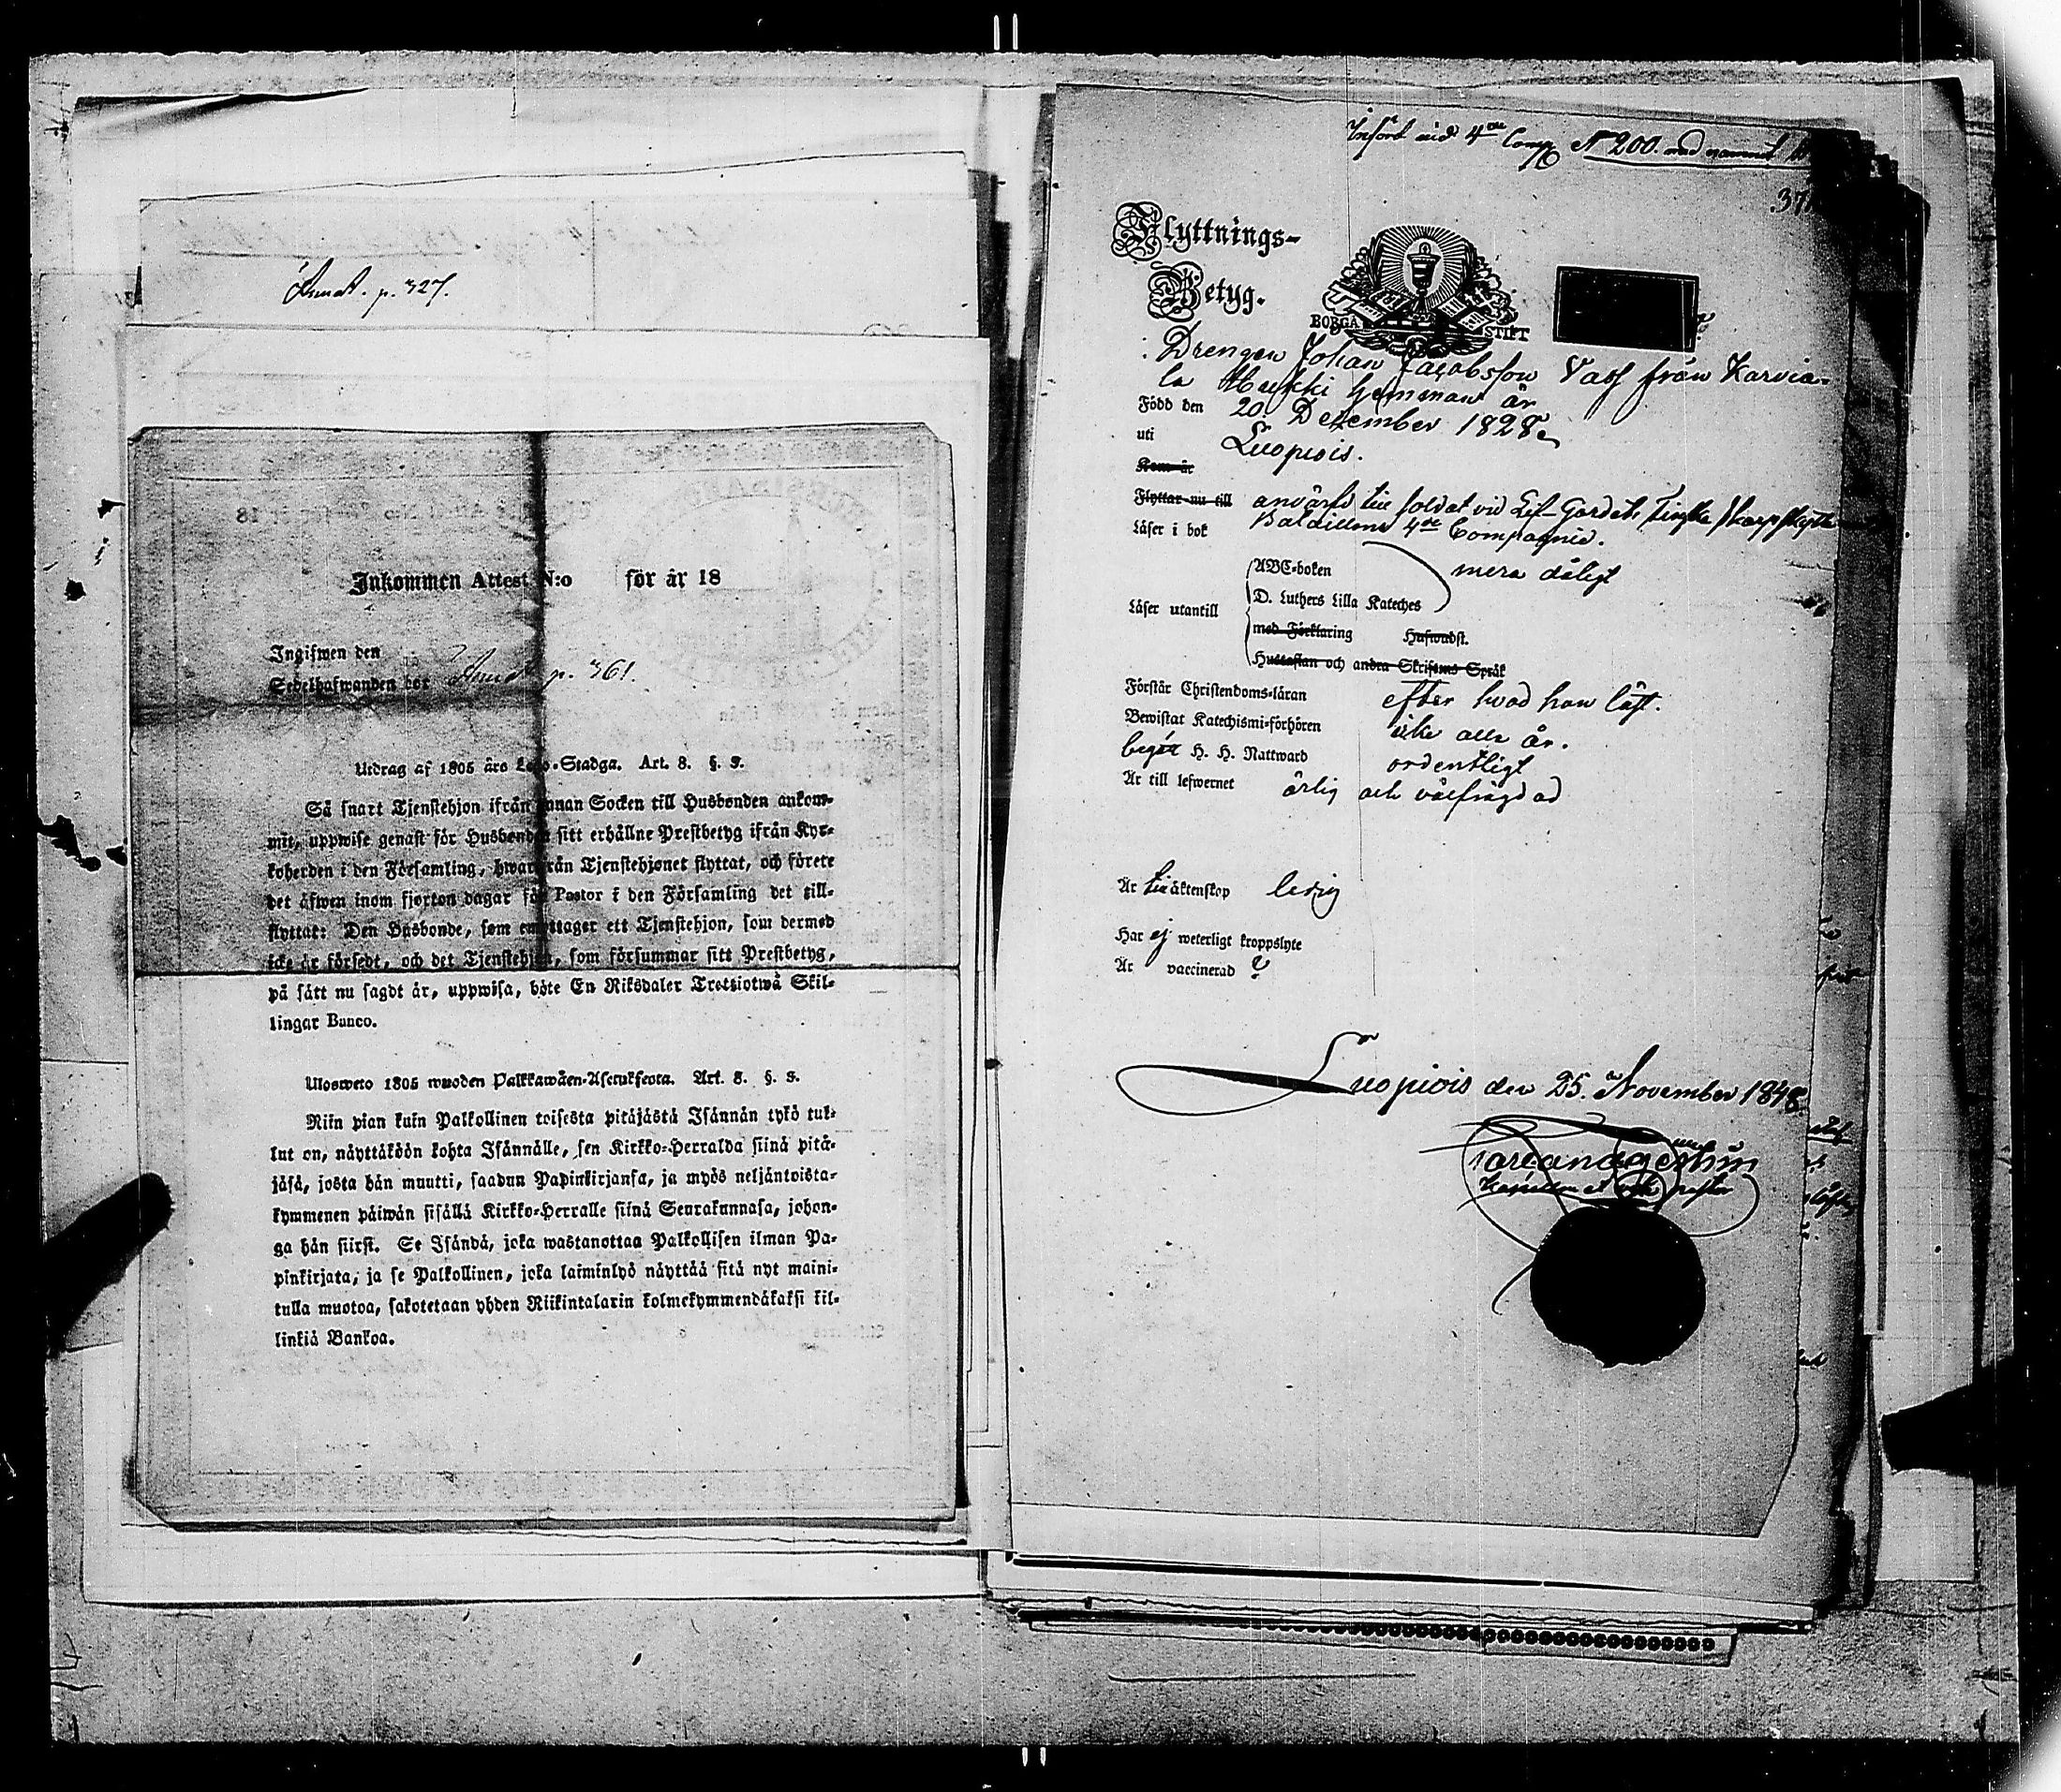 Annot. p. 327.
Inkommen Attest N:o för år 18
Ingifwen den
Sedelhafwanden bor Annot p. 361.
Utdrag af 1805 års Lego-Stadga. Art. 8. §. 3.
Så snart Tjenstehjon ifrån annan Socken till Husbonden ankom-
mit, uppwise genast för Husbonden sitt erhållne Prestbetyg ifrån Kyr-
koherden i den Församling, hwarifrån Tjenstehjonet flyttat, och förete
det äfwen inom fjorton dagar för Pastor i den Församling det till-
flyttat: Den Husbonde, som emottager ett Tjenstehjon, som dermed
icke är försedt, och det Tjenstehjon, som försummar sitt Prestbetyg,
på sätt nu sagdt är, uppwisa, böte En Riksdaler Trettiotwå Skil-
lingar Banco.
Ulosweto 1805 wuoden Palkkawäen-Asetuksesta. Art. 8. §. 3.
Niin pian kuin Palkollinen toisesta pitäjästä Isännän tykö tul-
lut on, näyttäköön kohta Isännälle, sen Kirkko-Herralda siinä pitä-
jäsä, josta hän muutti, saadun Papinkirjansa, ja myös neljäntoista-
kymmenen päiwän sisällä Kirkko-Herralle siinä Seurakunnasa, johon-
ga hän siirst. Se Isändä, joka wastanottaa Palkollisen ilman Pa-
pinkirjata, ja se Palkollinen, joka laiminlyö näyttää sitä nyt maini-
tulla muotoa, sakotetaan yhden Riikintalarin kolmekymmendäkaksi kil-
linkiä Bankoa.
Infört vid 4de Comp N 200. med namnet
37
Flyttnings-
Betyg.
BORGÅ STIFT
Drengen Johan Jacobsson Vass från Karvia-
la Mukki hemman är
Född den 20. December 1828.
uti Luopiois.
Kom är
Flyttar nu till anvärfd till soldat vid Lif-Gardets Finska skarpskytte
Bataillons 4de Compagnie.
Läser i bok
Läser utantill
ABC-boken mera dåligt
D. Luthers Lilla Kateches
med Förklaring Huswudst.
Hustaflan och andra Skriftens Språk
Förstår Christendoms-läran efter hvad han läst.
Bewistat Katechismi-förhören icke alla år.
begått H. H. Nattward ordentligt
Är till lefwernet ärlig och välfrägdad
Är till äktenskap ledig
Har ej weterligt kroppslyte
Är vaccinerad ?
Luopiois den 25. November 1848.